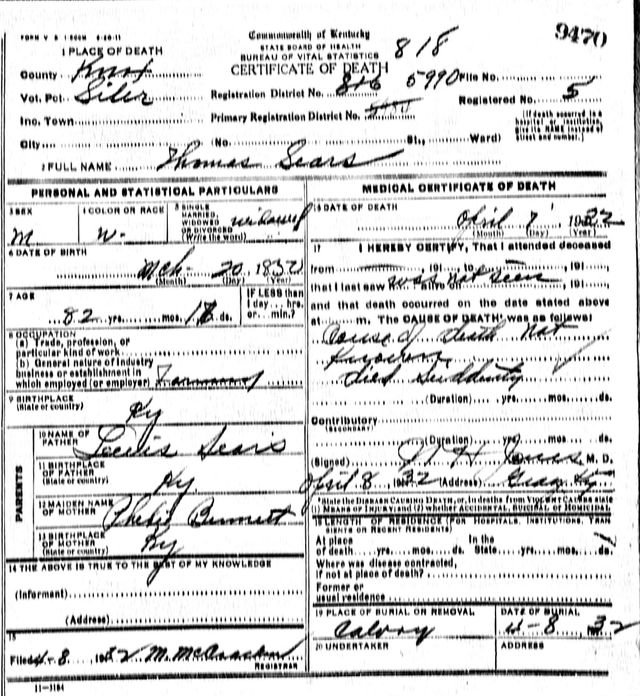 FORM V S 1
Commonwealth of Kentucky
STATE BOARD OF HEALTH
BUREAU OF VITAL STATISTICS
CERTIFICATE OF DEATH
9470
818
1 PLACE OF DEATH
County Knox
Vot. Pct. Siler
Inc. Town
City (No. St., Ward)
Registration District No. 816 5990 File No.
Primary Registration District No. Registered No. 5
[If death occurred in a hospital or institution, give its NAME instead of street and number.]
2 FULL NAME Thomas Sears
PERSONAL AND STATISTICAL PARTICULARS
3 SEX M
4 COLOR OR RACE W.
5 SINGLE MARRIED, WIDOWED OR DIVORCED (Write the word) widowed
6 DATE OF BIRTH
Mch. 20 1850
(Month) (Day) (Year)
7 AGE
IF LESS than 1 day...hrs. or...min.?
82 yrs. mos. 17 ds.
8 OCCUPATION
(a) Trade, profession, or particular kind of work
(b) General nature of industry business or establishment in which employed (or employer)
9 BIRTHPLACE
(State or country) Ky
PARENTS
10 NAME OF FATHER Lewis Sears
11 BIRTHPLACE OF FATHER (State or country) Ky
12 MAIDEN NAME OF MOTHER Phebe Bennett
13 BIRTHPLACE OF MOTHER (State or country) Ky
14 THE ABOVE IS TRUE TO THE BEST OF MY KNOWLEDGE
(Informant)
(Address)
15
Filed 4-8 1932 M. McCracken
REGISTRAR
11-3184
MEDICAL CERTIFICATE OF DEATH
16 DATE OF DEATH
April 7 1932
(Month) (Day) (Year)
17 I HEREBY CERTIFY, That I attended deceased
from 191 to 191
that I last saw was not seen 191
and that death occurred on the date stated above
at m. The CAUSE OF DEATH* was as follows:
Cause of death not
Known
died suddenly
(Duration) yrs. mos. ds.
Contributory
(SECONDARY)
(Duration) yrs. mos. ds.
(Signed) Jones M. D.
April 8 1932 (Address) Gray Ky
*State the DISEASE CAUSING DEATH, or, in deaths from VIOLENT CAUSES state
(1) MEANS OF INJURY; and (2) whether ACCIDENTAL, SUICIDAL or HOMICIDAL.
18 LENGTH OF RESIDENCE (FOR HOSPITALS, INSTITUTIONS, TRANSIENTS OR RECENT RESIDENTS)
At place of death yrs. mos. ds. In the State yrs. mos. ds.
Where was disease contracted, if not at place of death?
Former or usual residence
19 PLACE OF BURIAL OR REMOVAL Calvry
DATE OF BURIAL 4-8 1932
20 UNDERTAKER
ADDRESS